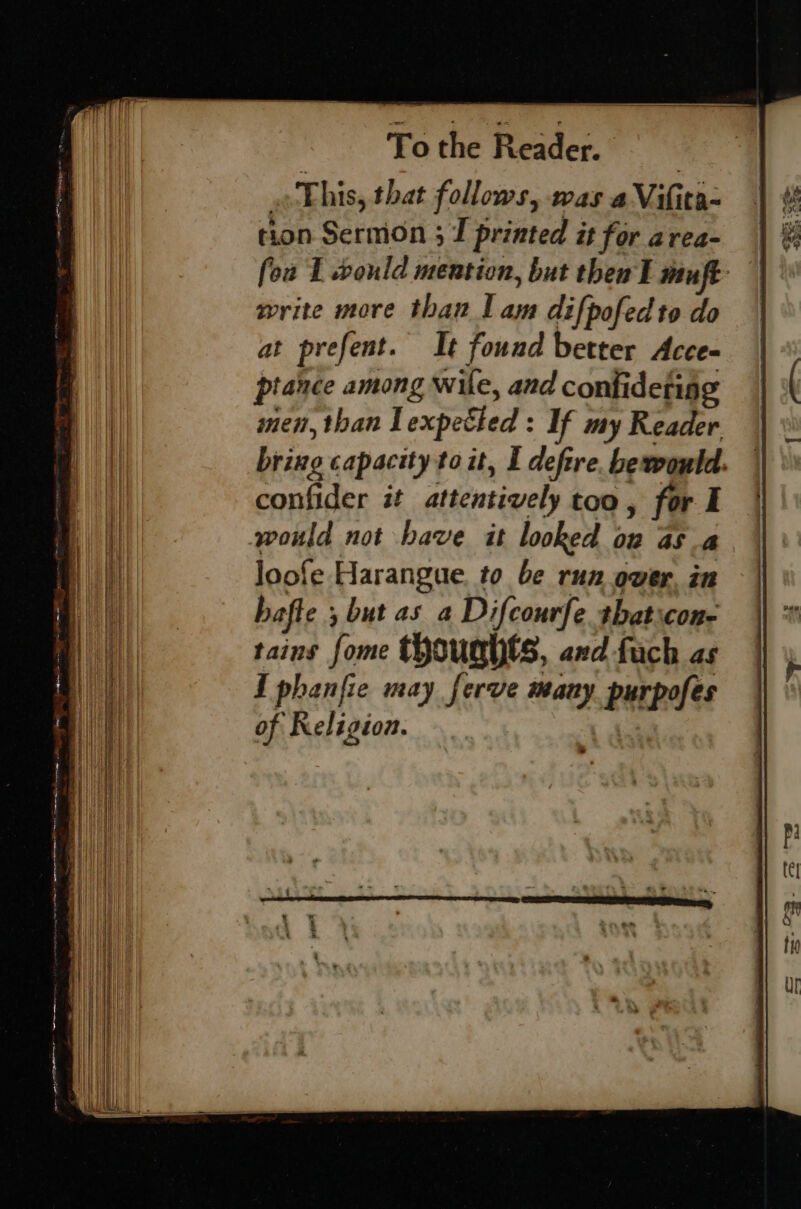 To the Reader.
This, that follows, was a Viſita-
tion Sermon ; I printed it for a rea-
ſon I would mention, but then I muſt
write more than I am diſpoſed to do
at preſent. It found better Acce-
ptance among wiſe, and conſidering
men, than I expected : If my Reader
bring capacity to it, I deſire he would.
conſider it attentively too, for I
would not have it looked on as a
looſe Harangue to be run over in
haſte ; but as a Diſcourſe that con-
tains ſome thoughts, and ſuch as
I phanſie may ſerve many purpoſes
of Religion.